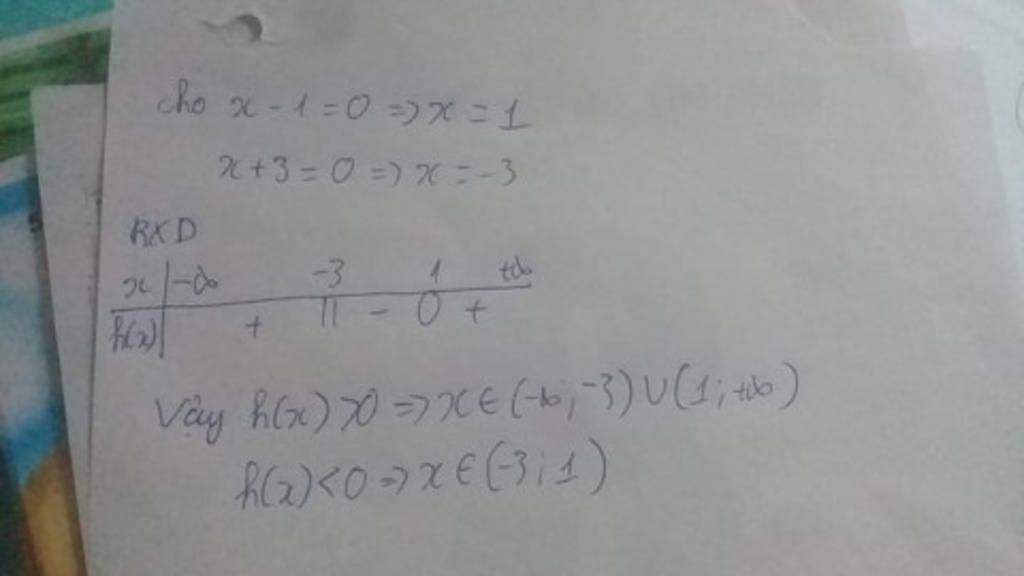 cho x - 1 = 0 => x = 1
x + 3 = 0 => x = -3
BXD
x -∞ -3 1 +∞
h(x) + || - 0 +
Vậy h(x) > 0 => x ∈ (-∞; -3) ∪ (1; +∞)
h(x) < 0 => x ∈ (-3; 1)